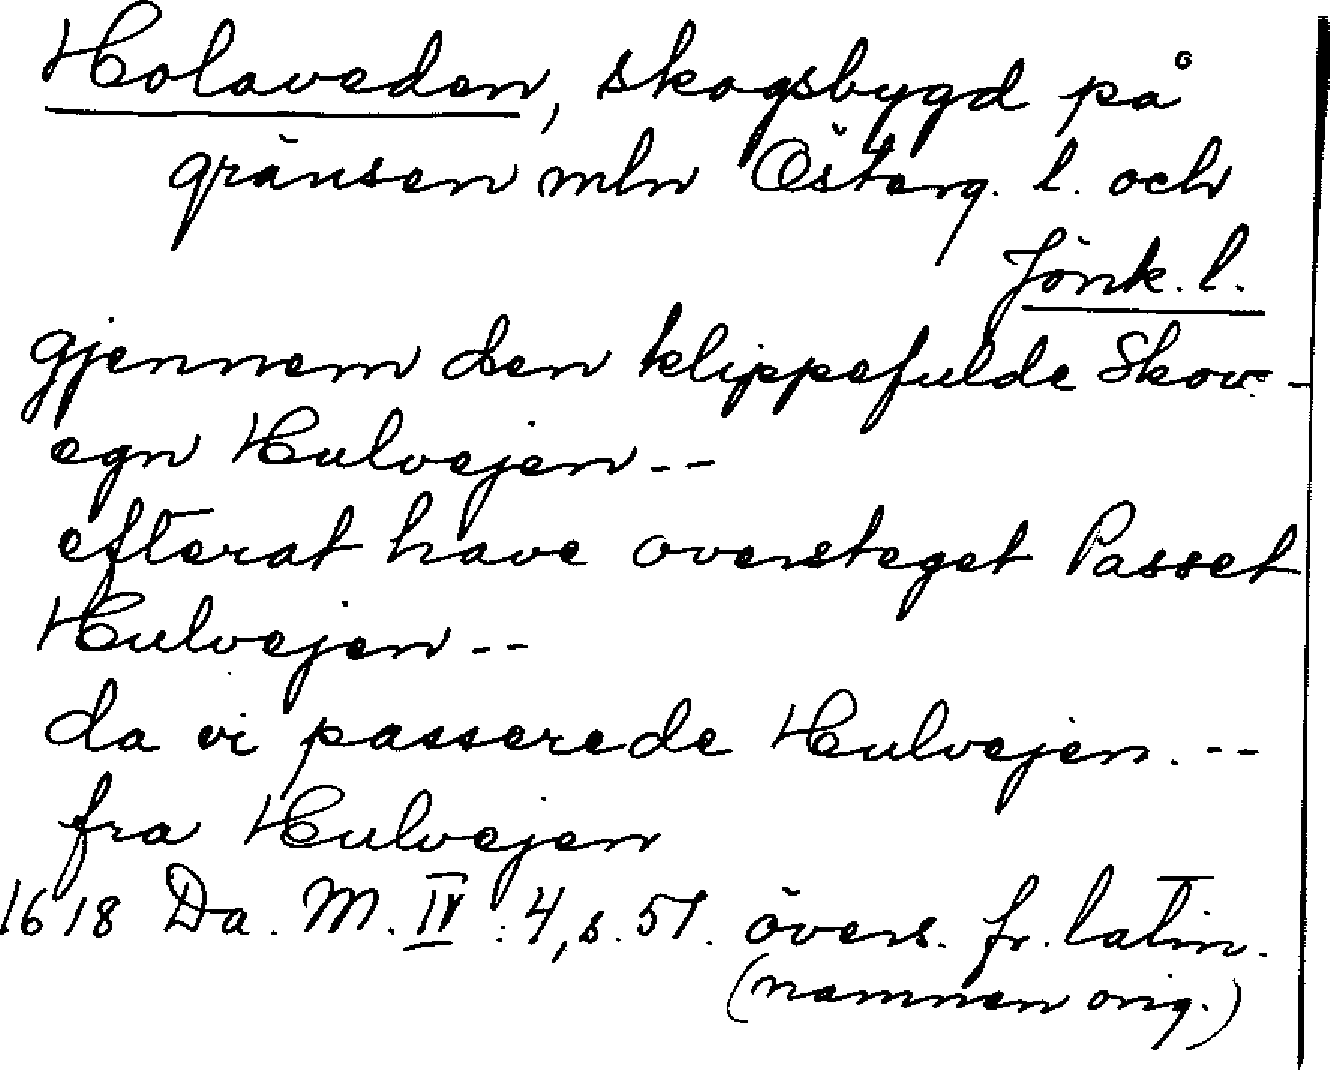 Holaveden, skogsbygd på
gränsen mln Österg. l. och
Jönk. l.
gjennem den klippefulde Skov-
egn Hulvejen--
efterat have oversteget Passet
Hulvejen--
da vi passerede Hulvejen.--
fra Hulvejen
1618 Da. M. IV:4, s. 51. övers. fr. latin.
(namnen orig.)